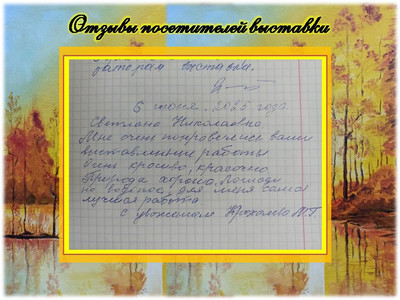 Отзывы посетителей выставки
выставки.
5 июня. 2025 года.
Светлана Николаевна.
Мне очень понравились ваши
выставленные работы
Очень красиво, красочно
Природа хороша, Лошади
на водопое, для меня самая
лучшая работа
с уважением